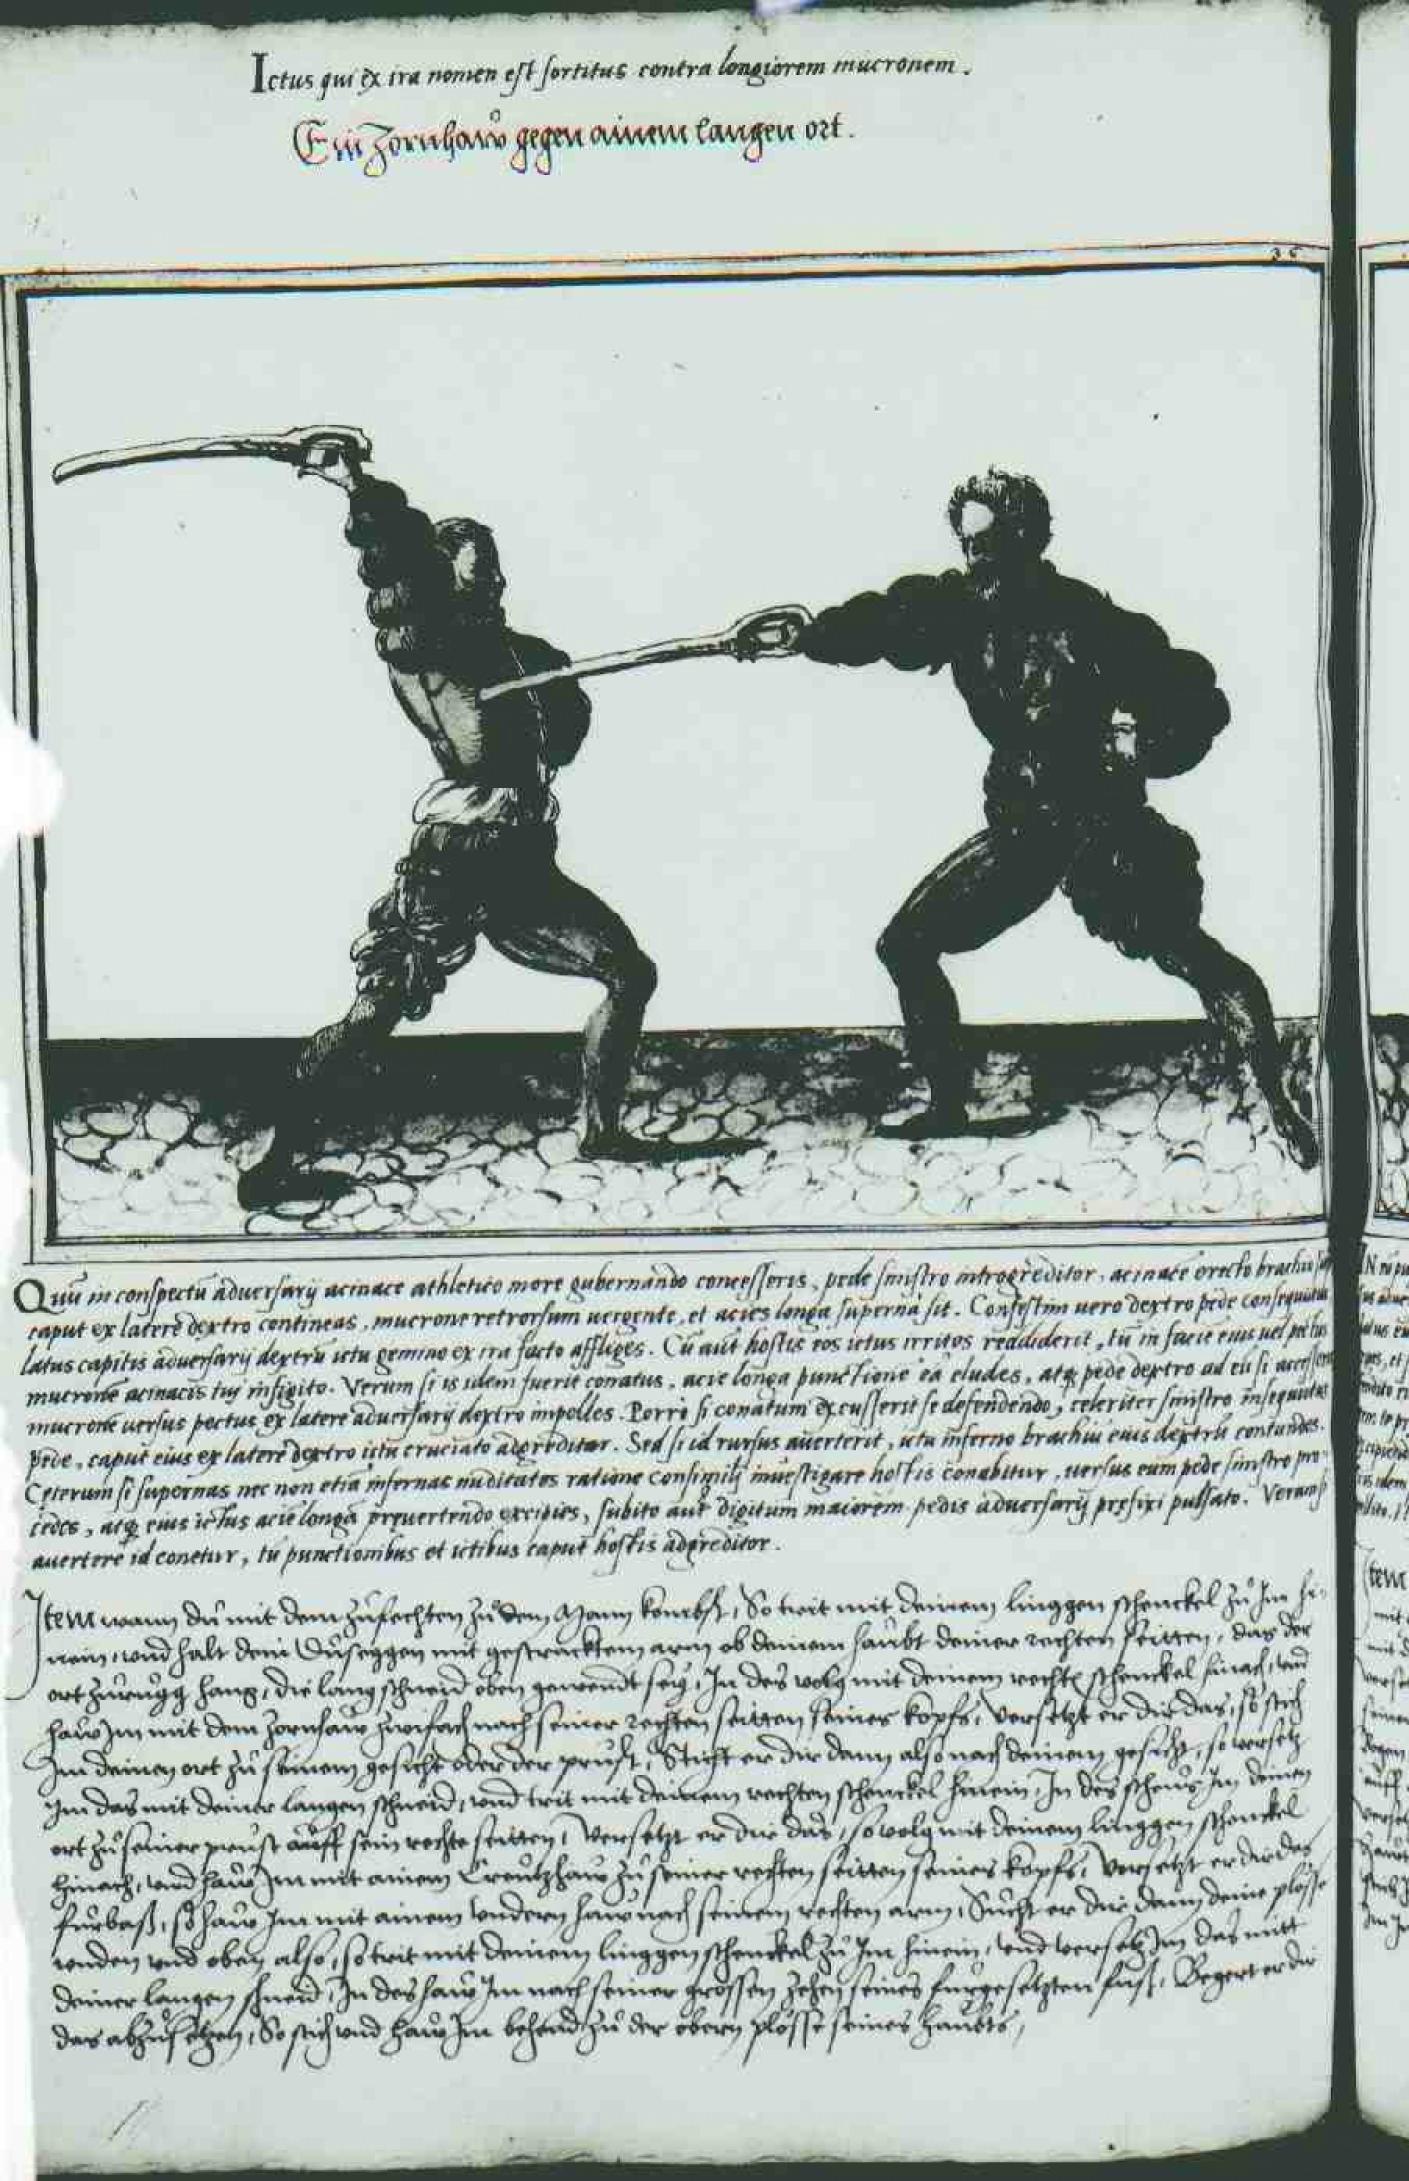 Ictus qui ex ira nomen est sortitus contra longiorem mucronem.
Ein Zornhaw gegen ainem langen ort.
36
Quū in conspectū adversarij acinace athletico more gubernando concesseris, pede sinistro introgreditor, acinacē erecto brachio
caput ex latere dextro contineas, mucrone retrorsum vergente, et acies longa superna sit. Confestim vero dextro pede consequutus
latus capitis adversarij dextrū ictu gemino ex ira facto affliges. Cū aūt hostis eos ictus irritos reddiderit, tū in faciē eius vel pectus
mucronē acinacis tuj infigito. Verum si is idem fuerit conatus, acie longa punctionē eā eludes, atq; pede dextro ad eū si accesseris
mucronē versus pectus ex latere adversarij dextro impelles. Porro si conatum excusserit se defendendo, celeriter sinistro insequutus
pede, caput eius ex latere dextro ictu cruciato adgreditor. Sed si id rursus averterit, ictu inferno brachiū eius dextrū contundes.
Ceterum si supernas nec non etiā infernas nuditates ratione consimilj investigare hostis conabitur, versus eum pede sinistro pro-
cedes, atq; eius ictus acie longa prevertendo excipies, subito aūt digitum maiorem pedis adversarij prefixi pulsato. Verum si
avertere id conetur, tu punctionibus et ictibus caput hostis adgreditor.
Item wann du mit dem zufechten zu dem Mann kombst, So trit mit deinem linggen schenckel zu Im hi-
nein, und halt dein Duseggen mit gestracktem arm ob deinem haubt deiner rechten seitten, das der
ort zurugg hang, die lang schneid oben gewendt seig, In des volg mit deinem rechtē schenckel hinach, und
haw Im mit dem zornhaw zwifach nach seiner rechten seitten seines kopfs, Versetzt er dir das, so stich
Im deinen ort zu seinem gesicht oder der prust, Sticht er dir dann also nach deinem gesicht, so versetz
Im das mit deiner langen schneid, und trit mit deinem rechten schenckel hinein, In des scheus Im deinen
ort zu seiner prust auff sein rechte seitten, Versetzt er dir das, so volg mit deinem linggen schenckel
hinach, und haw Im mit ainem Creutzhaw zu seiner rechten seitten seines kopfs, Versetzt er dir das
furbaß, so haw Im mit ainem undern haw nach seinem rechten arm, Sucht er dir dann deine plosse
unden und oben also, so trit mit deinem linggen schenckel zu Im hinein, und versetz Im das mitt
deiner langen schneid, In des haw Im nach seiner grossen zehen seines furgesetzten fuß, Begert er dir
das abzusetzen, So stich und haw Im behend zu der obern plosse seines haubts,